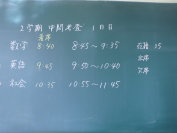 2学期 中間考査 1日目
着席
数学 8:40 8:45～9:35 在籍 35
出席
英語 9:45 9:50～10:40
欠席
社会 10:35 10:55～11:45